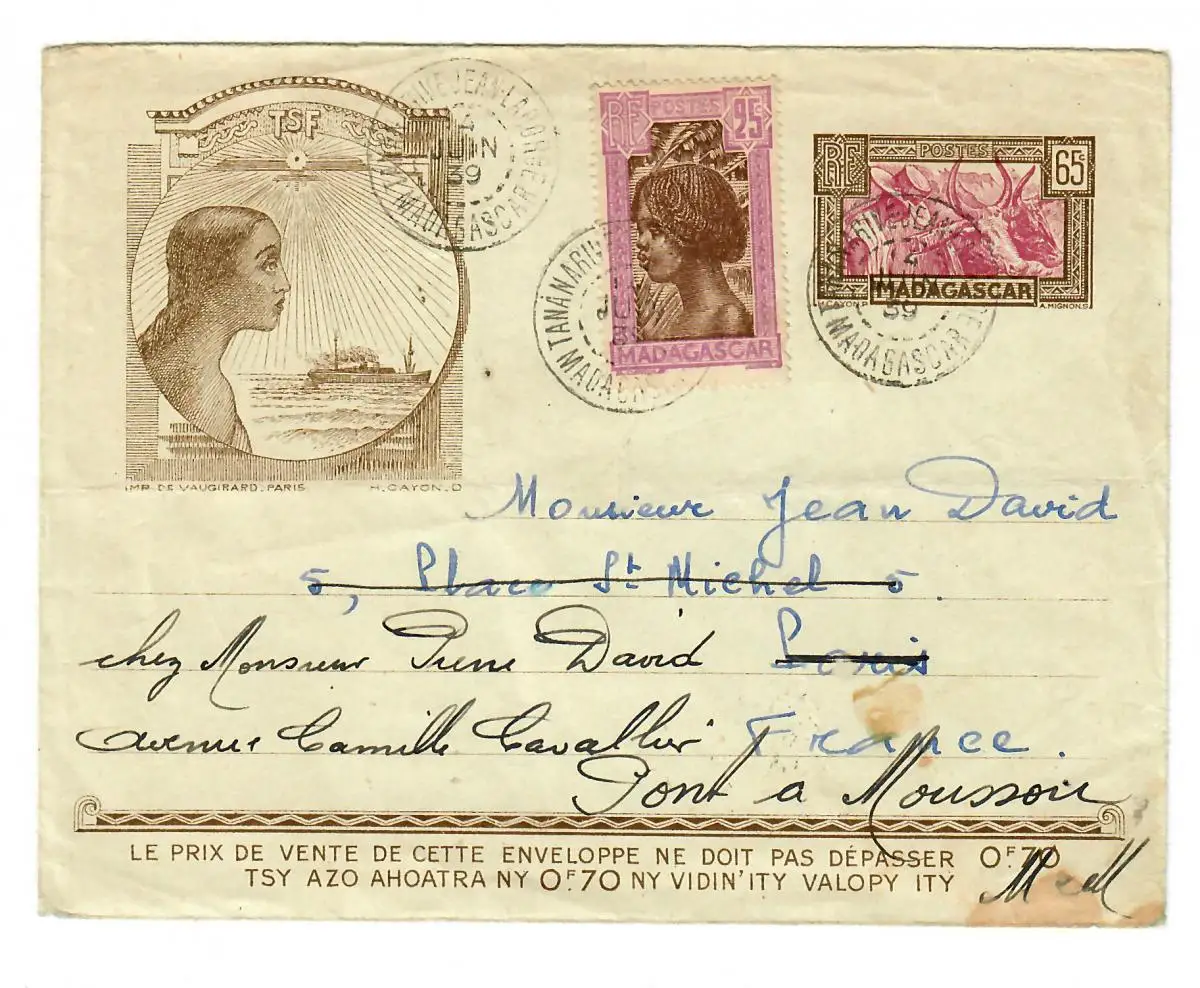 TSF
IMP. DE VAUGIRARD. PARIS H. CAYON. D
TANANARIVE JEAN-LABORDE
2
JUIN
39
MADAGASCAR
RF POSTES 25c
MADAGASCAR
TANANARIVE
MADAGASCAR
RF POSTES 65c
MADAGASCAR
H. CAYON. A. MIGNON. S
2
39
MADAGASCAR
Monsieur Jean David
5, Place St Michel 5.
Paris
chez Monsieur Pierre David
avenue Camille Cavallier France.
Pont a Mousson
LE PRIX DE VENTE DE CETTE ENVELOPPE NE DOIT PAS DÉPASSER 0F.70
TSY AZO AHOATRA NY 0F.70 NY VIDIN'ITY VALOPY ITY
M et M